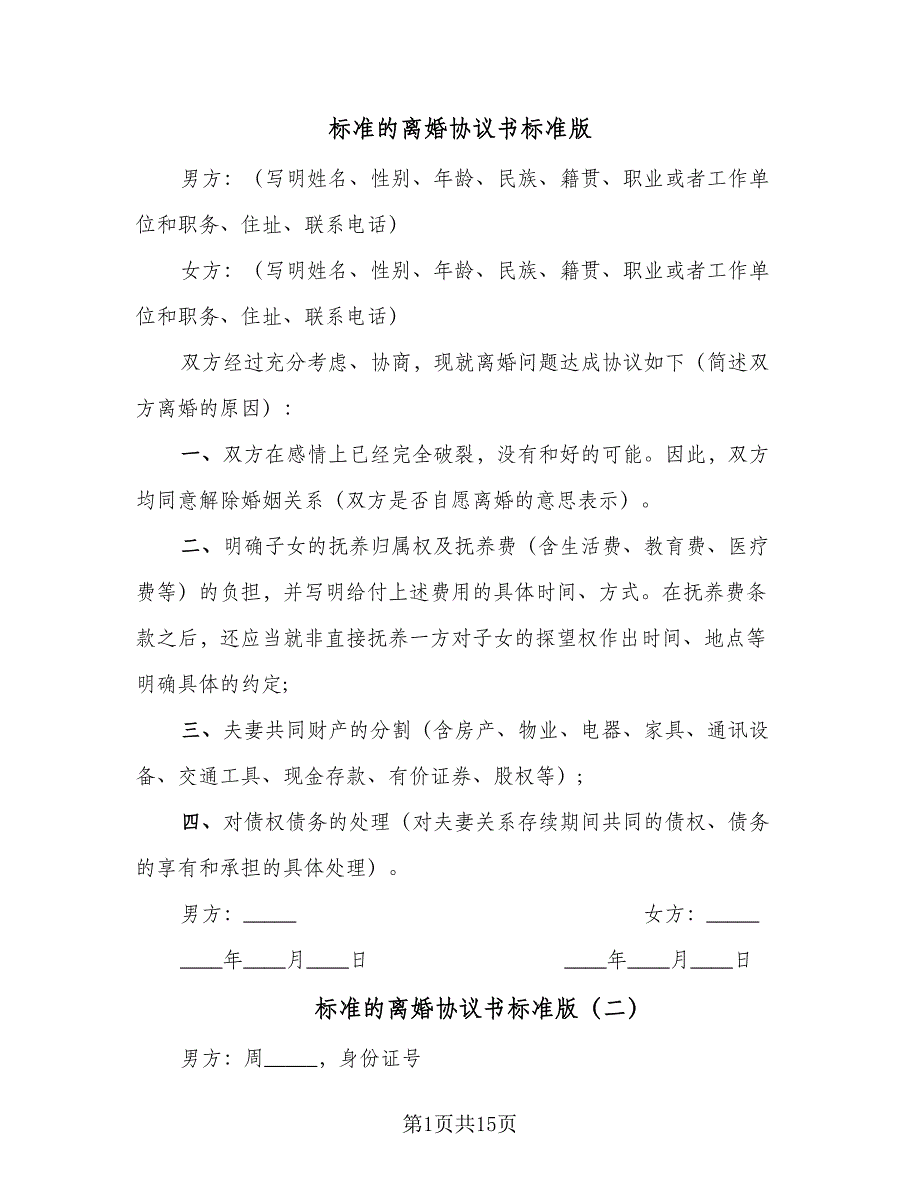 标准的离婚协议书标准版
男方：（写明姓名、性别、年龄、民族、籍贯、职业或者工作单
位和职务、住址、联系电话）
女方：（写明姓名、性别、年龄、民族、籍贯、职业或者工作单
位和职务、住址、联系电话）
双方经过充分考虑、协商，现就离婚问题达成协议如下（简述双
方离婚的原因）：
一、双方在感情上已经完全破裂，没有和好的可能。因此，双方
均同意解除婚姻关系（双方是否自愿离婚的意思表示）。
二、明确子女的抚养归属权及抚养费（含生活费、教育费、医疗
费等）的负担，并写明给付上述费用的具体时间、方式。在抚养费条
款之后，还应当就非直接抚养一方对子女的探望权作出时间、地点等
明确具体的约定;
三、夫妻共同财产的分割（含房产、物业、电器、家具、通讯设
备、交通工具、现金存款、有价证券、股权等）;
四、对债权债务的处理（对夫妻关系存续期间共同的债权、债务
的享有和承担的具体处理）。
男方：_____ 女方：_____
____年____月____日 ____年____月____日
标准的离婚协议书标准版（二）
男方：周_____，身份证号
第1页共15页